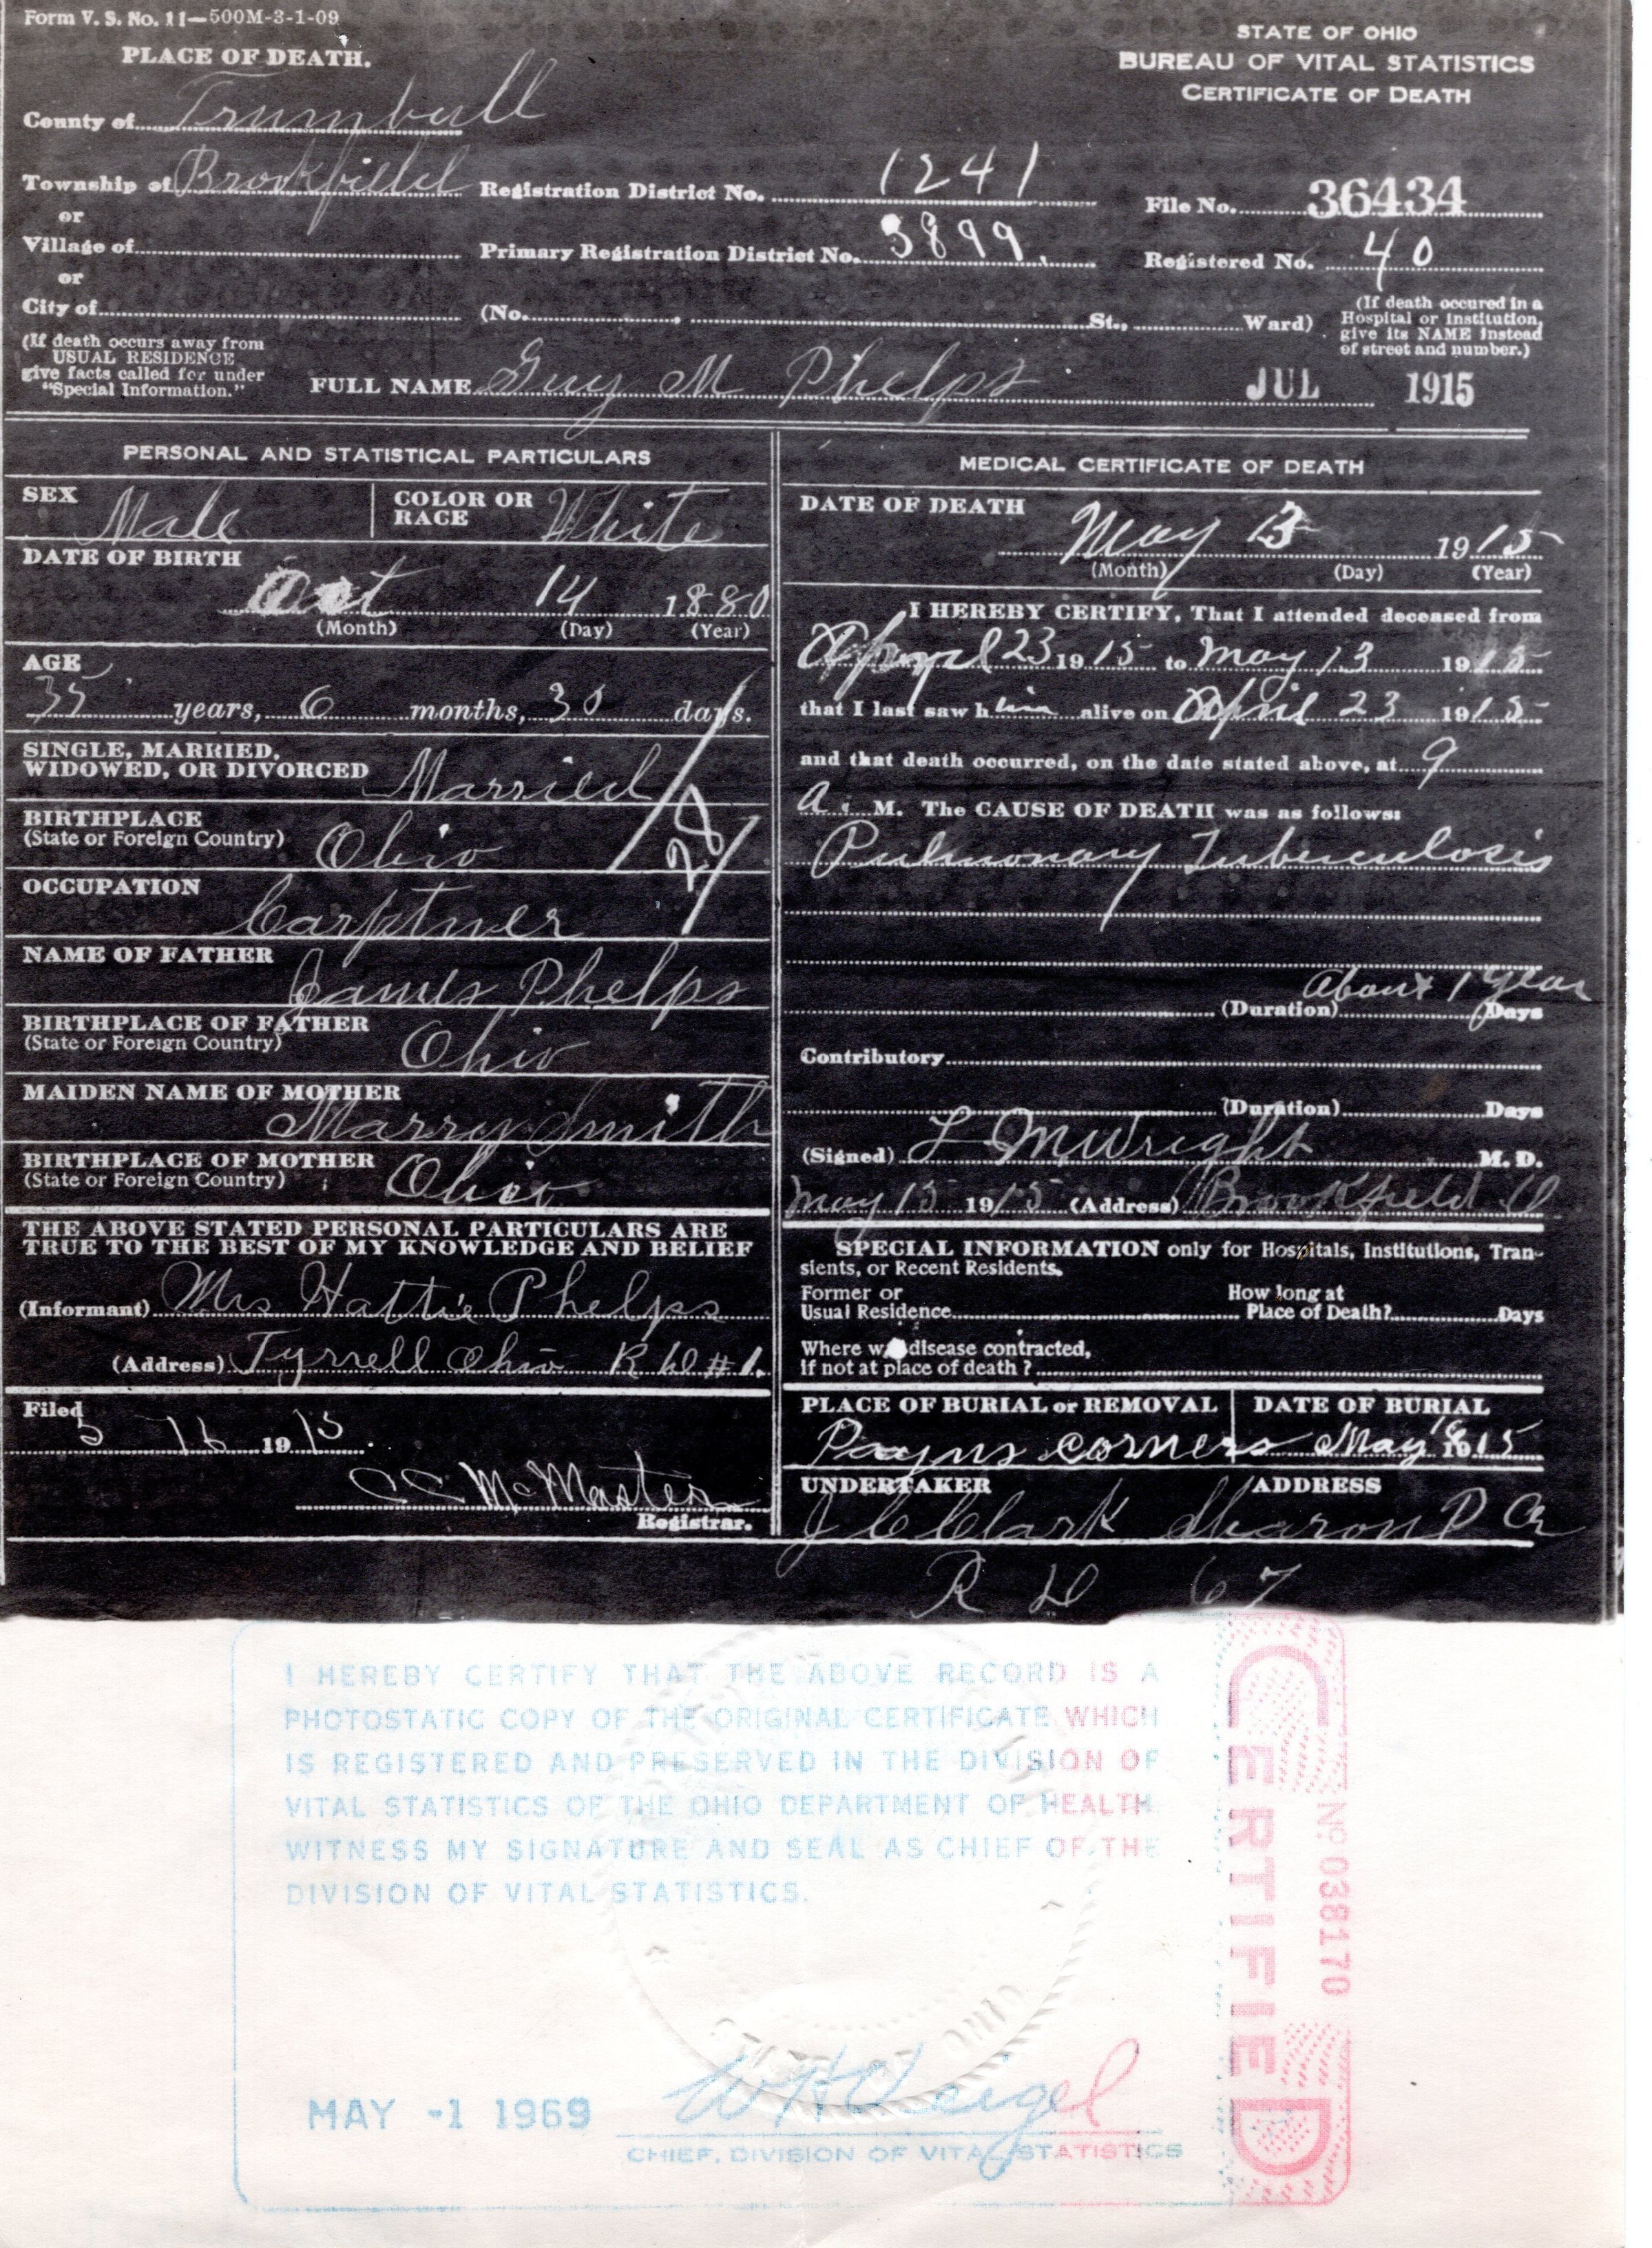 Form V. S. No. 11—500M-3-1-09
STATE OF OHIO
BUREAU OF VITAL STATISTICS
CERTIFICATE OF DEATH
PLACE OF DEATH.
County of Trumbull
Township of Brookfield Registration District No. 1241 File No. 36434
or
Village of Primary Registration District No. 3899. Registered No. 40
or
City of (No. , St., Ward)
(If death occured in a
Hospital or Institution,
give its NAME instead
of street and number.)
(If death occurs away from
USUAL RESIDENCE
give facts called for under
"Special Information."
FULL NAME Guy M Phelps JUL 1915
PERSONAL AND STATISTICAL PARTICULARS
SEX Male COLOR OR RACE White
DATE OF BIRTH
Oct 14 1880
(Month) (Day) (Year)
AGE
35 years, 6 months, 30 days.
SINGLE, MARRIED,
WIDOWED, OR DIVORCED Married
BIRTHPLACE
(State or Foreign Country) Ohio
28
OCCUPATION
Carptner
NAME OF FATHER
James Phelps
BIRTHPLACE OF FATHER
(State or Foreign Country) Ohio
MAIDEN NAME OF MOTHER
Marry Smith
BIRTHPLACE OF MOTHER
(State or Foreign Country) Ohio
THE ABOVE STATED PERSONAL PARTICULARS ARE
TRUE TO THE BEST OF MY KNOWLEDGE AND BELIEF
(Informant) Mrs Hattie Phelps
(Address) Tyrrell Ohio R D #1.
Filed
5 16 1915
C C McMaster
Registrar.
MEDICAL CERTIFICATE OF DEATH
DATE OF DEATH
May 13 1915
(Month) (Day) (Year)
I HEREBY CERTIFY, That I attended deceased from
April 23 1915 to May 13 1915
that I last saw him alive on April 23 1915
and that death occurred, on the date stated above, at 9
a. M. The CAUSE OF DEATH was as follows:
Pulmonary Tuberculosis
About 1 year
(Duration) Days
Contributory
(Duration) Days
(Signed) L M Wright M. D.
May 15 1915 (Address) Brookfield O
SPECIAL INFORMATION only for Hospitals, Institutions, Tran-
sients, or Recent Residents.
Former or
Usual Residence
How long at
Place of Death? Days
Where was disease contracted,
if not at place of death?
PLACE OF BURIAL or REMOVAL DATE OF BURIAL
Payns Corners May 1915
UNDERTAKER ADDRESS
J C Clark Sharon Pa
R D 67
I HEREBY CERTIFY THAT THE ABOVE RECORD IS A
PHOTOSTATIC COPY OF THE ORIGINAL CERTIFICATE WHICH
IS REGISTERED AND PRESERVED IN THE DIVISION OF
VITAL STATISTICS OF THE OHIO DEPARTMENT OF HEALTH
WITNESS MY SIGNATURE AND SEAL AS CHIEF OF THE
DIVISION OF VITAL STATISTICS.
MAY -1 1969
CHIEF, DIVISION OF VITAL STATISTICS
CERTIFIED
No 038170